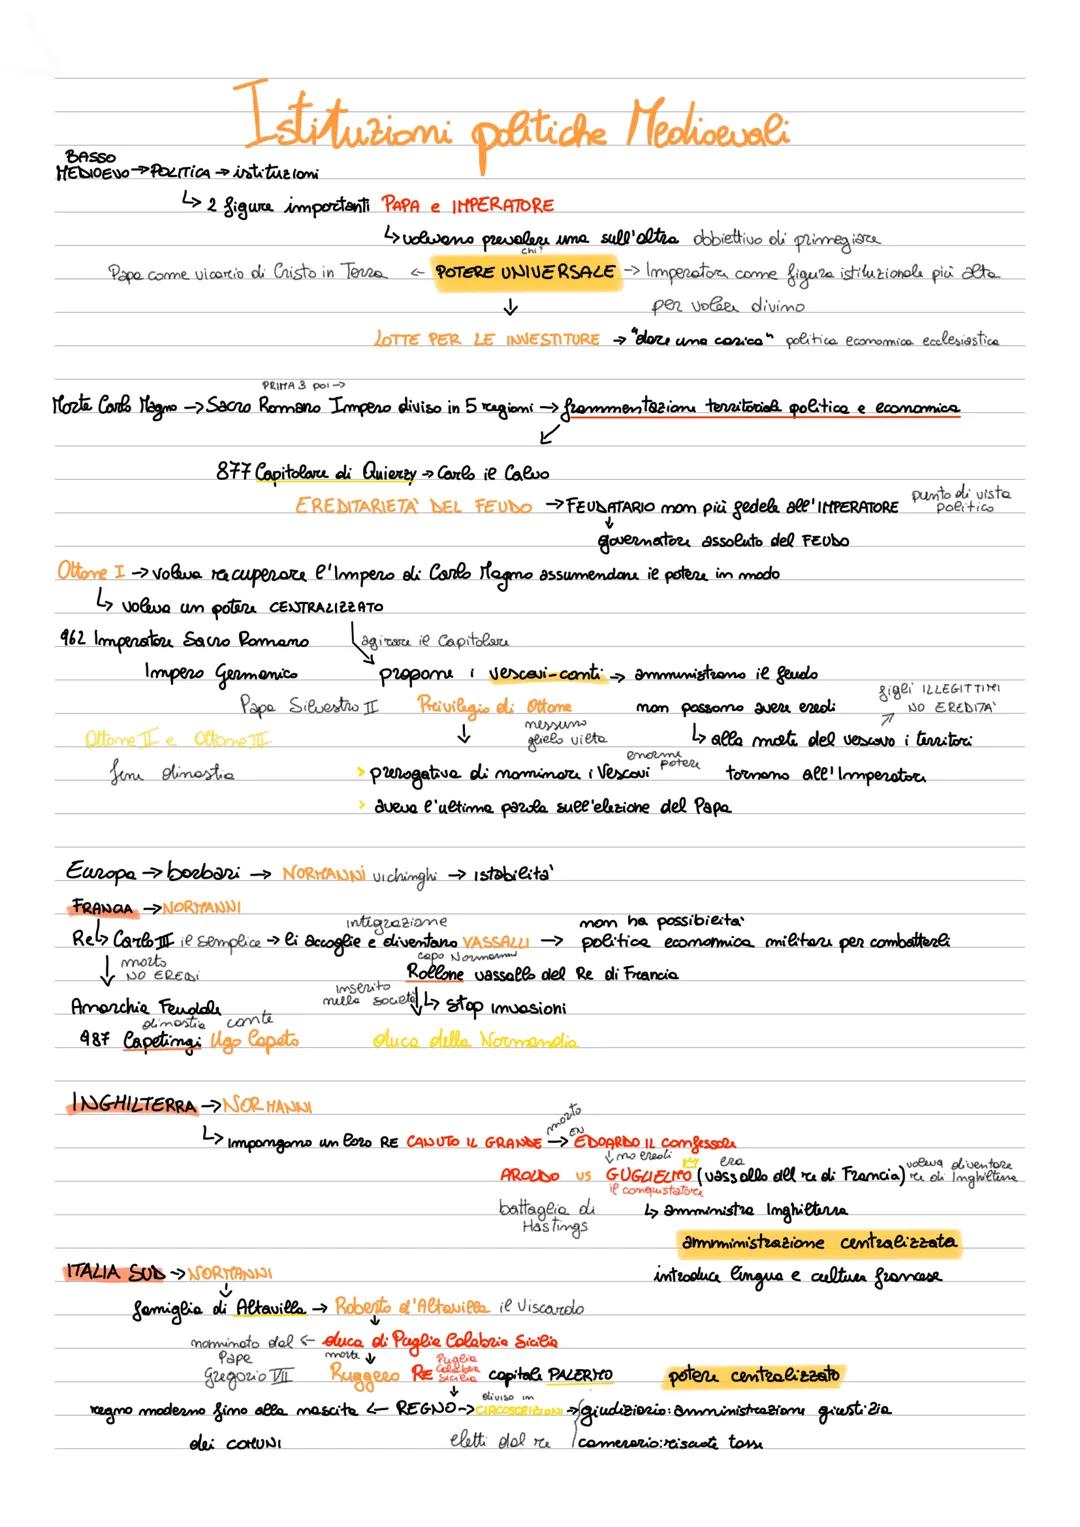 Istituzioni politiche Medioevali
BASSO
MEDIOEVO → POLITICA → istituzioni
↳ 2 figure importanti PAPA e IMPERATORE
↳ volevano prevalere una sull'altra obbiettivo di primegiare
chi?
Papa come vicario di Cristo in Terra ← POTERE UNIVERSALE → Imperatore come figura istituzionale più alta
↓ per volere divino
LOTTE PER LE INVESTITURE → "dare una carica" politica economica ecclesiastica
PRIMA 3 poi →
Morte Carlo Magno → Sacro Romano Impero diviso in 5 regioni → frammentazione territoriale politica e economica
877 Capitolare di Quierzy → Carlo il Calvo
EREDITARIETÀ DEL FEUDO → FEUDATARIO non più fedele all'IMPERATORE punto di vista politico
↓
governatore assoluto del FEUDO
Ottone I → voleva recuperare l'Impero di Carlo Magno assumendone il potere in modo
↳ voleva un potere CENTRALIZZATO
962 Imperatore Sacro Romano agirare il Capitolare
Impero Germanico propone i vescovi-conti → amministrano il feudo
figli ILLEGITTIMI
Papa Silvestro II Privilegio di Ottone non possono avere eredi NO EREDITA'
Ottone II e Ottone III ↓ nessuno glielo vieta ↳ alla morte del vescovo i territori
fine dinastia > prerogativa di nominare i Vescovi enorme potere tornano all'Imperatore
> aveva l'ultima parola sull'elezione del Papa
Europa → barbari → NORMANNI vichinghi → istabilita'
FRANCIA → NORMANNI
integrazione non ha possibilita'
Re ↳ Carlo III il Semplice → li accoglie e diventano VASSALLI → politica economica militare per combatterli
↓ morto NO EREDI capo Normanni
Rollone vassallo del Re di Francia
inserito nella società ↓ ↳ stop invasioni
Anarchia Feudale
dinastia conte
987 Capetingi Ugo Capeto duca della Normandia
INGHILTERRA → NORMANNI
morto
↳ impongono un loro RE CANUTO IL GRANDE → EDOARDO IL Confessore
↓ no eredi era
AROLDO VS GUGLIELMO (vassallo dell re di Francia) voleva diventare re di Inghilterra
il conquistatore
battaglia di Hastings ↳ amministra Inghilterra
amministrazione centralizzata
ITALIA SUD → NORMANNI introduce lingua e cultura francese
↓
famiglia di Altavilla → Roberto d'Altavilla il Viscardo
↓
nominato dal ← duca di Puglia Calabria Sicilia
Papa morte ↓ Puglia
Gregorio VII Ruggero RE Calabria Sicilia capitale PALERMO potere centralizzato
↓ diviso in
regno moderno fino alla nascita ← REGNO → CIRCOSCRIZIONI → giudiziario: amministrazione giustizia
dei COMUNI eletti dal re camerario: riscuote tasse